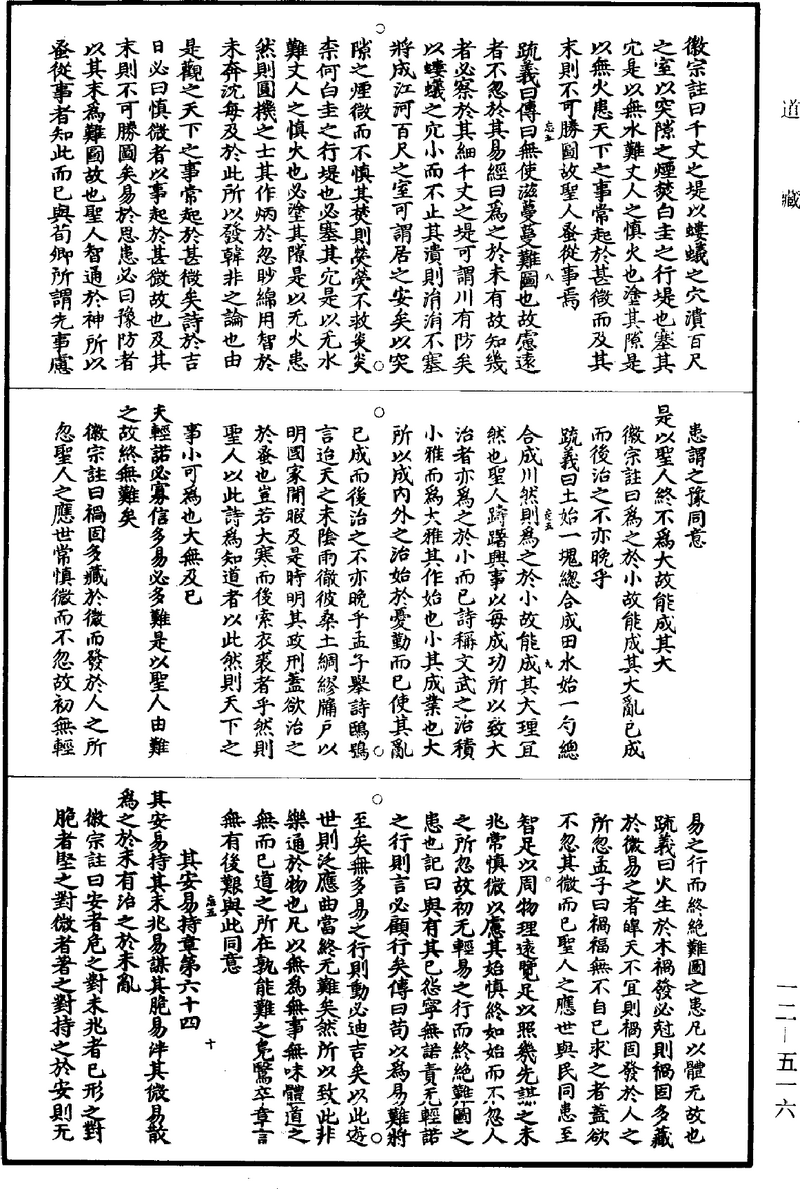 道藏
徽宗註曰千丈之堤以螻蟻之穴潰百尺
之室以突隙之煙焚白圭之行堤也塞其
穴是以無水難丈人之慎火也塗其隙是
以無火患天下之事常起於甚微而及其
末則不可勝圖故聖人蚤從事焉
疏義曰傳曰無使滋蔓蔓難圖也故慮遠
者不忽於其易經曰為之於未有故知幾
者必察於其細千丈之堤可謂川有防矣
以螻蟻之穴小而不止其潰則涓涓不塞
將成江河百尺之室可謂居之安矣以突
隙之煙微而不慎其焚則熒熒不救炎炎
柰何白圭之行堤也必塞其穴是以无水
難丈人之慎火也必塗其隙是以无火患
然則圓機之士其作炳於忽眇綿用智於
未奔沈每及於此所以發韓非之論也由
是觀之天下之事常起於甚微矣詩於吉
日必曰慎微者以事起於甚微故也及其
末則不可勝圖矣易於思患必曰豫防者
以其末為難圖故也聖人智通於神所以
蚤從事者知此而已與荀卿所謂先事慮
患謂之豫同意
是以聖人終不為大故能成其大
徽宗註曰為之於小故能成其大亂已成
而後治之不亦晚乎
疏義曰土始一塊總合成田水始一勺總
合成川然則為之於小故能成其大理宜
然也聖人躊躇興事以每成功所以致大
治者亦為之於小而已詩稱文武之治積
小雅而為大雅其作始也小其成業也大
所以成內外之治始於憂勤而已使其亂
已成而後治之不亦晚乎孟子舉詩鴟鴞
言迨天之未陰雨徹彼桑土綢繆牖戶以
明國家閒暇及是時明其政刑蓋欲治之
於蚤也豈若大寒而後索衣裘者乎然則
聖人以此詩為知道者以此然則天下之
事小可為也大無及已
夫輕諾必寡信多易必多難是以聖人由難
之故終無難矣
徽宗註曰禍固多藏於微而發於人之所
忽聖人之應世常慎微而不忽故初無輕
易之行而終絕難圖之患凡以體无故也
疏義曰火生於木禍發必剋則禍固多藏
於微易之者皞天不宜則禍固發於人之
所忽孟子曰禍福無不自己求之者蓋欲
不忽其微而已聖人之應世與民同患至
智足以周物理遠覽足以照幾先謀之未
兆常慎微以慮其始慎終如始而不忽人
之所忽故初无輕易之行而終絕難圖之
患也記曰與有其已怨寧無諾責无輕諾
之行則言必顧行矣傳曰苟以為易難將
至矣無多易之行則動必迪吉矣以此遊
世則泛應曲當終无難矣然所以致此非
樂通於物也凡以無為無事無味體道之
無而已道之所在孰能難之兌驚卒章言
無有後艱與此同意
其安易持章第六十四
其安易持其未兆易謀其脆易泮其微易散
為之於未有治之於未亂
徽宗註曰安者危之對未兆者已形之對
脆者堅之對微者著之對持之於安則无
一二－五一六